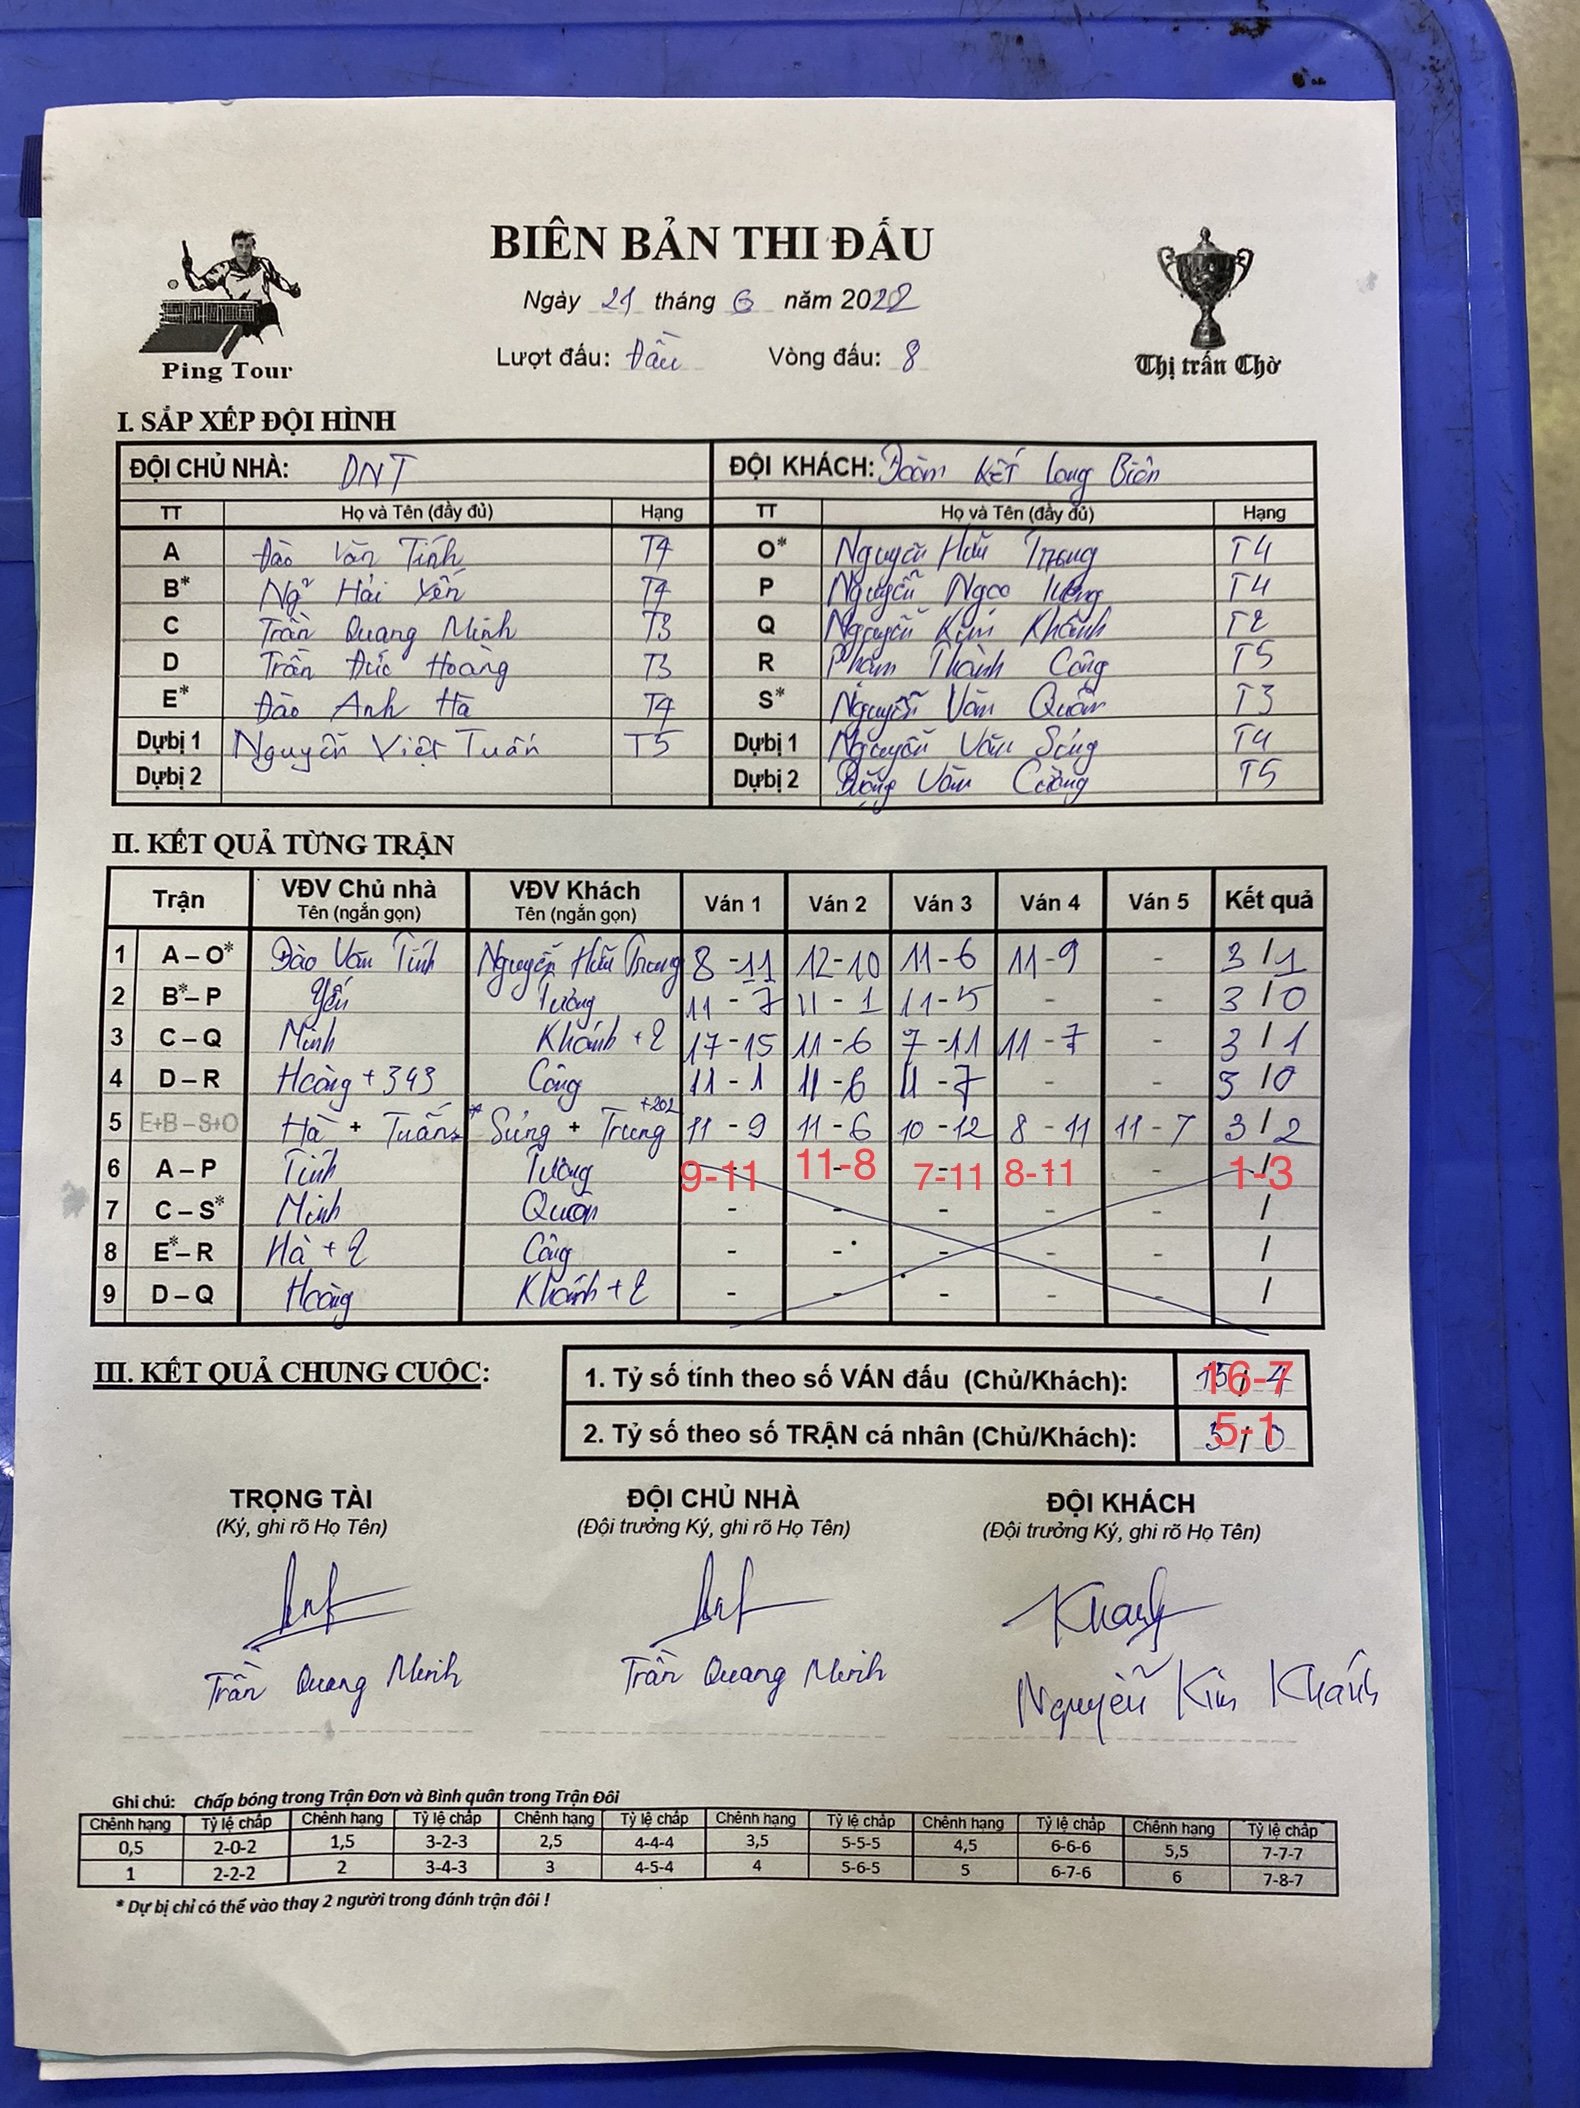 BIÊN BẢN THI ĐẤU
Ngày 21 tháng 6 năm 2022
Lượt đấu: Đầu Vòng đấu: 8
Ping Tour
Thị trấn Chờ
I. SẮP XẾP ĐỘI HÌNH
ĐỘI CHỦ NHÀ: DNT ĐỘI KHÁCH: Đoàn Kết Long Biên
TT Họ và Tên (đầy đủ) Hạng TT Họ và Tên (đầy đủ) Hạng
A Đào Văn Tính T4 O* Nguyễn Hữu Trung T4
B* Ng~ Hải Yến T4 P Nguyễn Ngọc Tường T4
C Trần Quang Minh T3 Q Nguyễn Kim Khánh T2
D Trần Đức Hoàng T3 R Phạm Thành Công T5
E* Đào Anh Hà T4 S* Nguyễn Văn Quân T3
Dựbị 1 Nguyễn Việt Tuấn T5 Dựbị 1 Nguyễn Văn Sủng T4
Dựbị 2 Dựbị 2 Đặng Văn Cường T5
II. KẾT QUẢ TỪNG TRẬN
Trận VĐV Chủ nhà VĐV Khách Ván 1 Ván 2 Ván 3 Ván 4 Ván 5 Kết quả
Tên (ngắn gọn) Tên (ngắn gọn)
1 A – O* Đào Văn Tính Nguyễn Hữu Trung 8 - 11 12 - 10 11 - 6 11 - 9 - 3 / 1
2 B* – P Yến Tường 11 - 7 11 - 1 11 - 5 - - 3 / 0
3 C – Q Minh Khánh + 2 17 - 15 11 - 6 7 - 11 11 - 7 - 3 / 1
4 D – R Hoàng + 343 Công 11 - 1 11 - 6 11 - 7 - - 3 / 0
5 E+B – S+O Hà + Tuấn * Sủng + Trung +202 11 - 9 11 - 6 10 - 12 8 - 11 11 - 7 3 / 2
6 A – P Tính Tường 9-11 11-8 7-11 8-11 - 1-3
7 C – S* Minh Quân - - - - - /
8 E* – R Hà + 2 Công - - - - - /
9 D – Q Hoàng Khánh + 2 - - - - - /
III. KẾT QUẢ CHUNG CUỘC:
1. Tỷ số tính theo số VÁN đấu (Chủ/Khách): 15 / 4 16-7
2. Tỷ số theo số TRẬN cá nhân (Chủ/Khách): 5 / 0 5-1
TRỌNG TÀI ĐỘI CHỦ NHÀ ĐỘI KHÁCH
(Ký, ghi rõ Họ Tên) (Đội trưởng Ký, ghi rõ Họ Tên) (Đội trưởng Ký, ghi rõ Họ Tên)
Khanh
Trần Quang Minh Trần Quang Minh Nguyễn Kim Khánh
Ghi chú: Chấp bóng trong Trận Đơn và Bình quân trong Trận Đôi
Chênh hạng Tỷ lệ chấp Chênh hạng Tỷ lệ chấp Chênh hạng Tỷ lệ chấp Chênh hạng Tỷ lệ chấp Chênh hạng Tỷ lệ chấp Chênh hạng Tỷ lệ chấp
0,5 2-0-2 1,5 3-2-3 2,5 4-4-4 3,5 5-5-5 4,5 6-6-6 5,5 7-7-7
1 2-2-2 2 3-4-3 3 4-5-4 4 5-6-5 5 6-7-6 6 7-8-7
* Dự bị chỉ có thể vào thay 2 người trong đánh trận đôi !